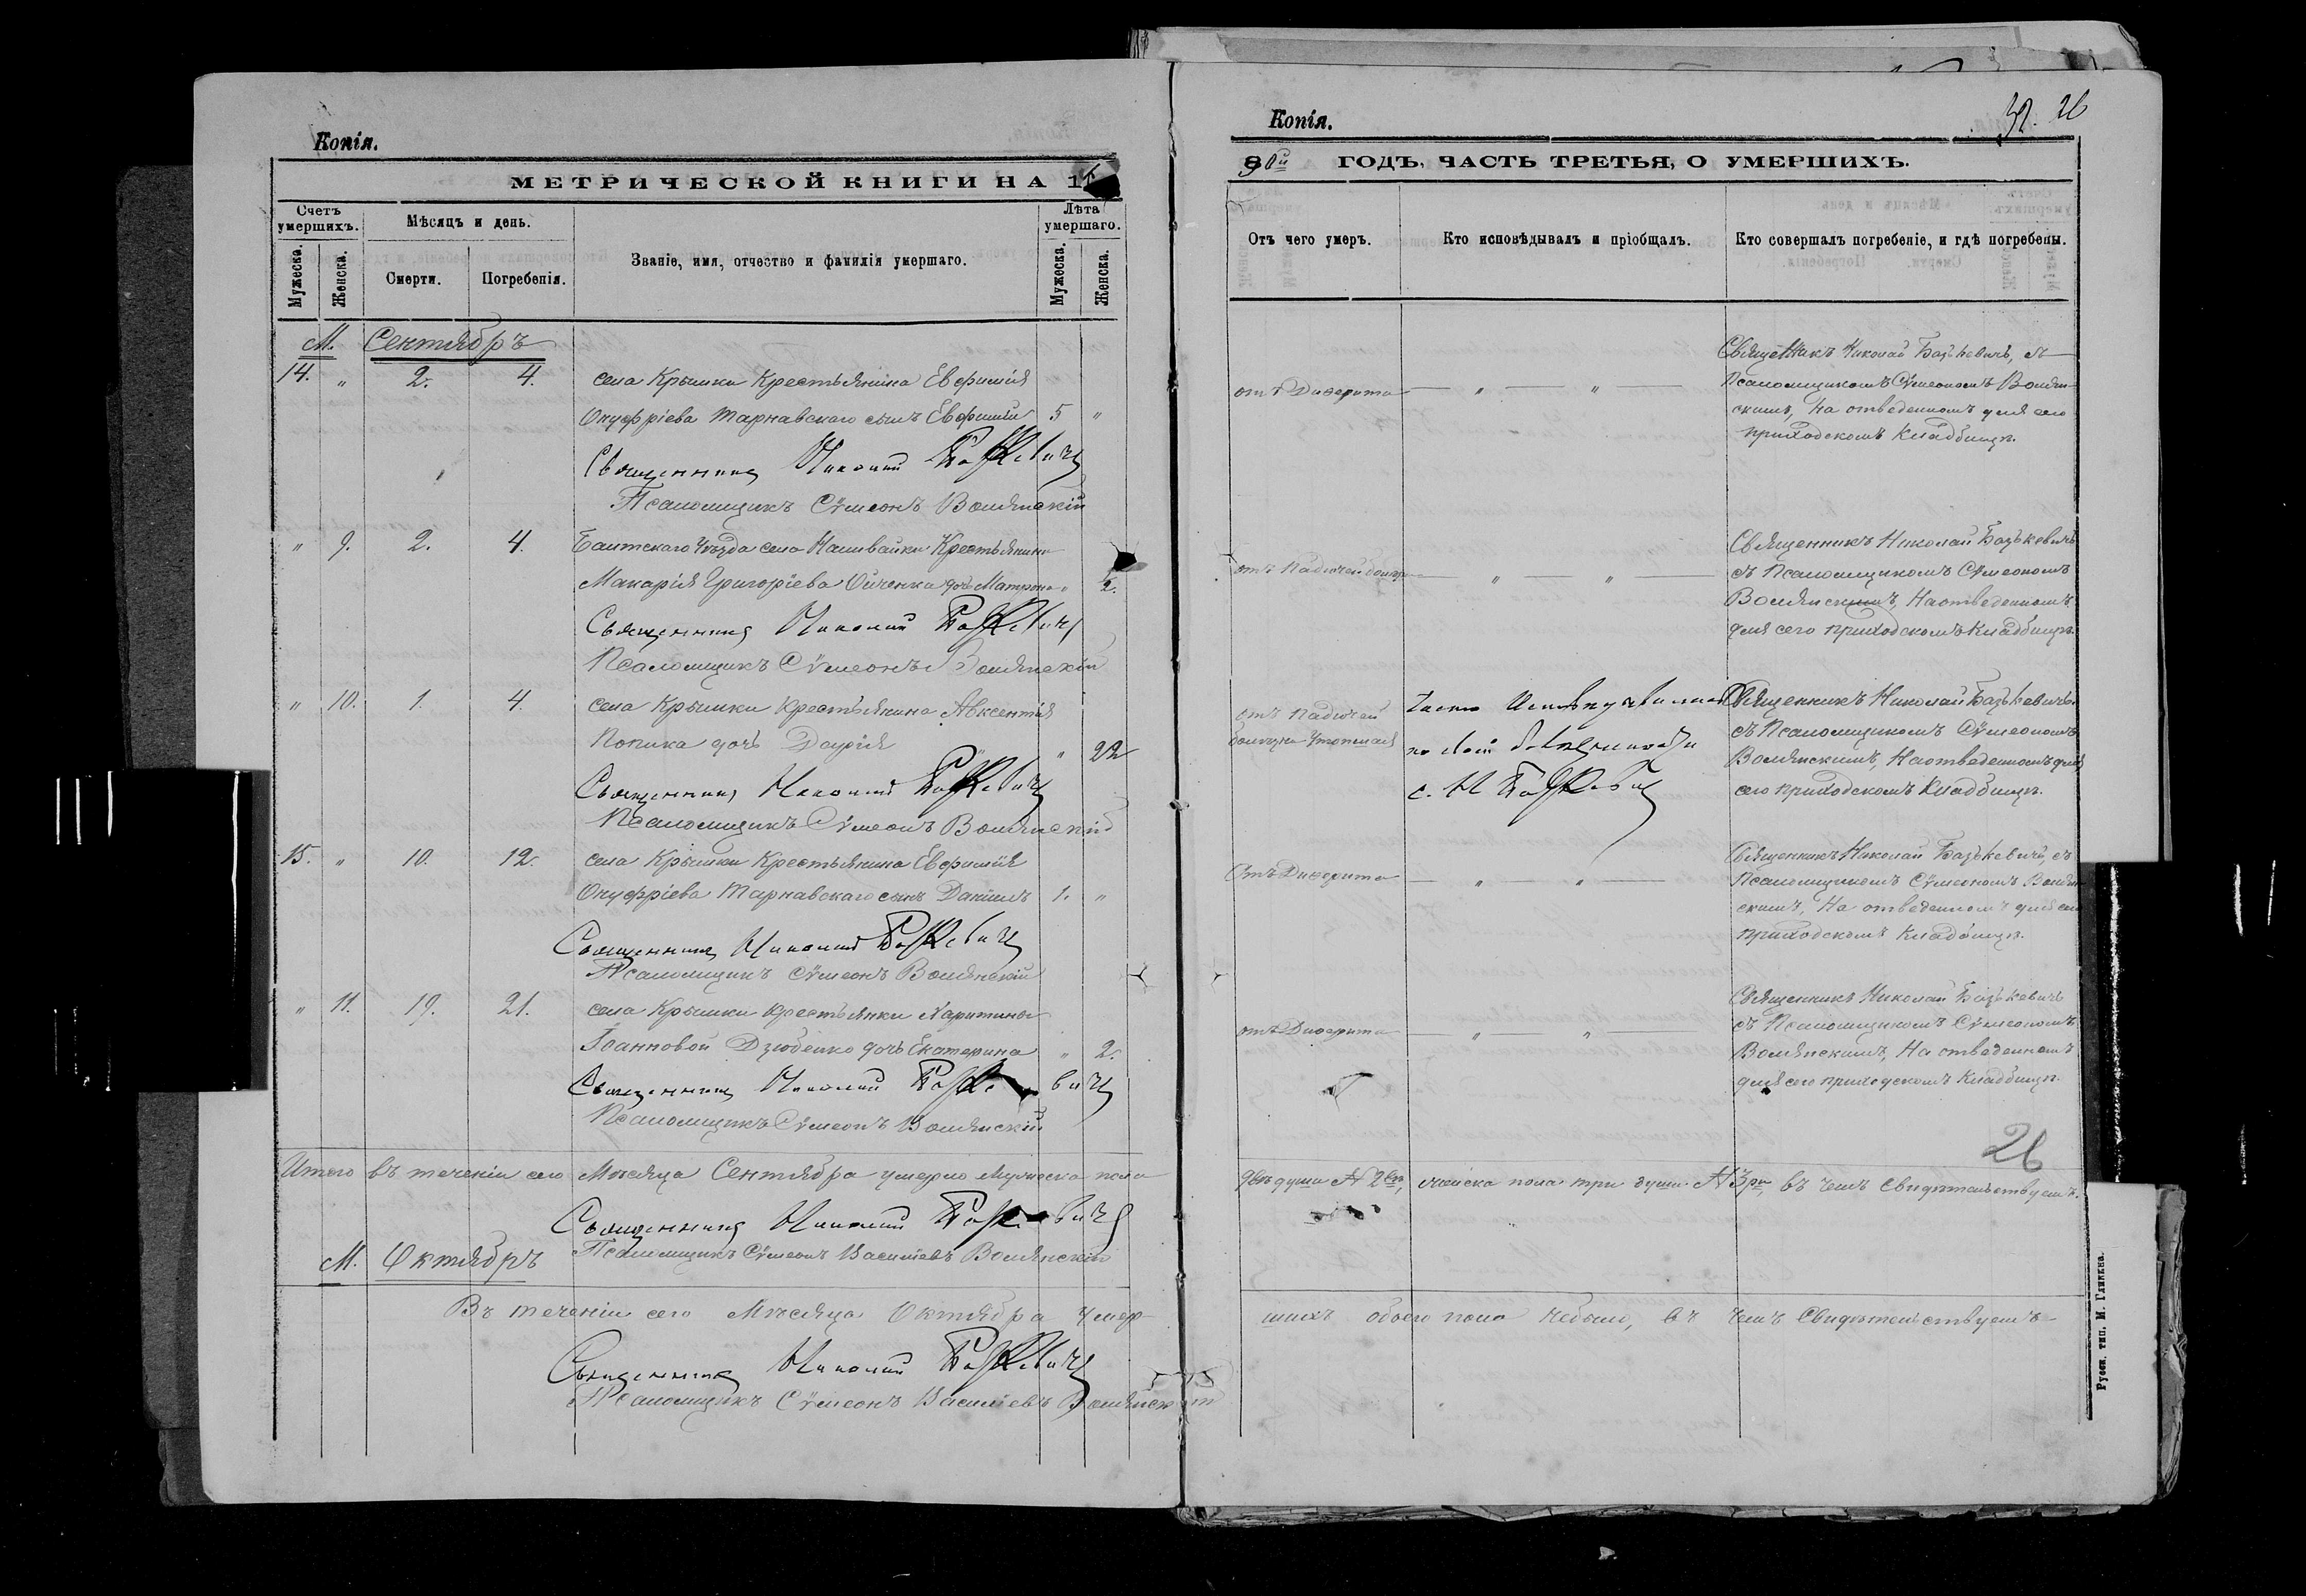 Копія.
МЕТРИЧЕСКОЙ КНИГИ НА 1
Счетъ умершихъ.
Мѣсяцъ и день.
Званіе, имя, отчество и фамилія умершаго.
Лѣта умершаго.
Мужеска.
Женска.
Смерти.
Погребенія.
Мужеска.
Женска.
М. Сентябрь
14. " 2. 4. села Крымки Крестьянина Евфимія
Онуфріева Тарнавскаго сынъ Евфимій 5 "
Священникъ Николай Базкевичъ
Псаломщикъ Сѵмеонъ Волянскій
" 9. 2. 4. Балтскаго Уѣзда села Наливайки Крестьянина
Макарія Григоріева дочь Матрона " 2.
Священникъ Николай Базкевичъ
Псаломщикъ Сѵмеонъ Волянскій
" 10. 1. 4. села Крымки Крестьянина Авксентія
Попика дочь " 22
Священникъ Николай Базкевичъ
Псаломщикъ Сѵмеонъ Волянскій
15. " 10. 12. села Крымки Крестьянина Евфимія
Онуфріева Тарнавскаго сынъ Даніилъ 1. "
Священникъ Николай Базкевичъ
Псаломщикъ Сѵмеонъ Волянскій
" 11. 19. 21. села Крымки Крестьянки Харитины
Іоанновой Дзюбенко дочь Екатерина " 2.
Священникъ Николай Базкевичъ
Псаломщикъ Сѵмеонъ Волянскій
Итого въ теченіи сего Мѣсяца Сентября умерло Мужеска пола
Священникъ Николай Базкевичъ
Псаломщикъ Сѵмеонъ Васильевъ Волянскій
М. Октябрь
Въ теченіи сего Мѣсяца Октября умер-
Священникъ Николай Базкевичъ
Псаломщикъ Сѵмеонъ Васильевъ Волянскій
Копія.
26
90й ГОДЪ, ЧАСТЬ ТРЕТЬЯ, О УМЕРШИХЪ.
Отъ чего умеръ.
Кто исповѣдывалъ и пріобщалъ.
Кто совершалъ погребеніе, и гдѣ погребены.
отъ Диѳерита — " — " —
Священникъ Николай Базькевичъ, съ
Псаломщикомъ Сѵмеономъ Волян-
скимъ, На отведенномъ для сего
приходскомъ Кладбищѣ.
отъ Падучей — " — " —
Священникъ Николай Базькевичъ
съ Псаломщикомъ Сѵмеономъ
Волянскимъ, На отведенномъ
для сего приходскомъ Кладбищѣ.
отъ Падучей
болѣзни
с. Н Базкевичъ
Священникъ Николай Базькевичъ
съ Псаломщикомъ Сѵмеономъ
Волянскимъ, На отведенномъ для
сего приходскомъ Кладбищѣ.
Отъ Диѳерита — " — " —
Священникъ Николай Базькевичъ, съ
Псаломщикомъ Сѵмеономъ Волян
скимъ, На отведенномъ для сего
приходскомъ Кладбищѣ.
отъ Диѳерита — " — " —
Священникъ Николай Базькевичъ
съ Псаломщикомъ Сѵмеономъ
Волянскимъ, На отведенномъ
для сего приходскомъ Кладбищѣ.
26
двѣ души № 2вѣ, женска пола три души № 3ри, въ чемъ Свидѣтельствуемъ.
шихъ обоего пола небыло, въ чемъ Свидѣтельствуемъ
Русск. тип. М. Гликна.